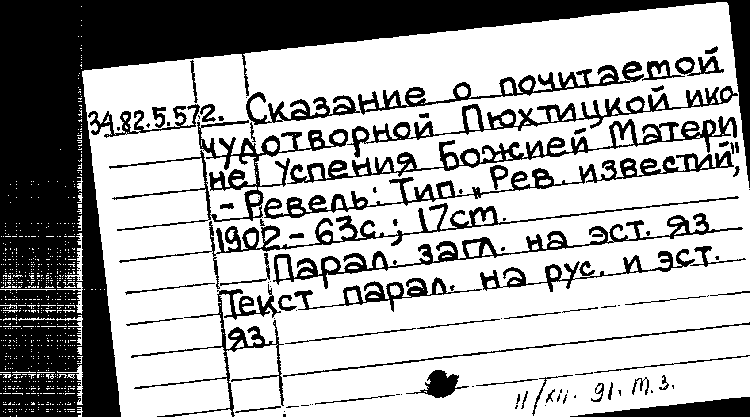 34.82.5.572. Сказание о почитаемой
чудотворной Пюхтицкой ико-
не Успения Божией Матери
.- Ревель: Тип. „Рев. известий",
1902.- 63с.; 17см.
Парал. загл. на эст. яз.
Текст парал. на рус. и эст.
яз.
11/XII. 91. т.з.